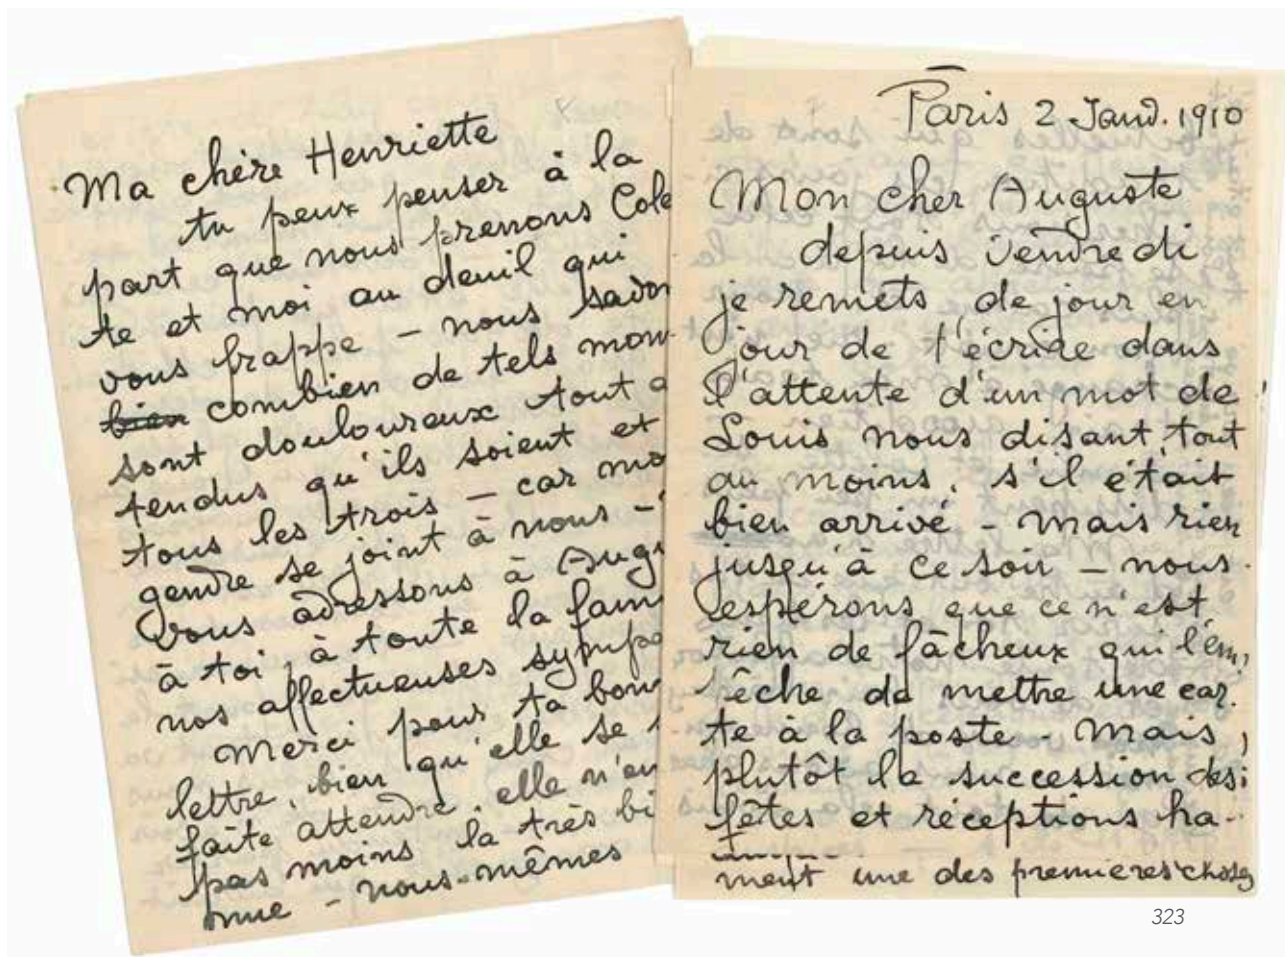 Ma chère Henriette
tu peux penser à la
part que nous prenons Cole
te et moi au deuil qui
vous frappe – nous savon
bien combien de tels mom
sont douloureux tout a
tendus qu'ils soient et
tous les trois – car mo
gendre se joint à nous –
vous adressons à Augu
à toi, à toute la fami
nos affectueuses sympa
Merci pour ta bonn
lettre, bien qu'elle se s
faite attendre, elle n'en
pas moins la très bi
nue – nous-mêmes
Paris 2 Janv. 1910
Mon cher Auguste
depuis Vendredi
je remets de jour en
jour de t'écrire dans
l'attente d'un mot de
Louis nous disant tout
au moins, s'il était
bien arrivé – mais rien
jusqu'à ce soir – nous
espérons que ce n'est
rien de fâcheux qui l'em
pêche de mettre une car
te à la poste – Mais
plutôt la succession des
fêtes et réceptions ha-
ment une des premières choses
323